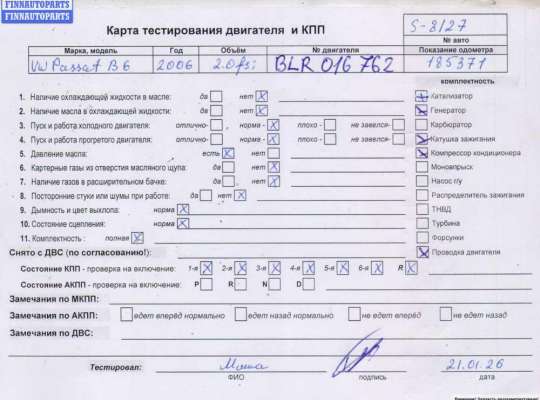 FINNAUTOPARTS
FINNAUTOPARTS
Карта тестирования двигателя и КПП
S-8127
№ авто
Марка, модель Год Объём № двигателя Показание одометра
VW Passat B6 2006 2.0fsi BLR 016 762 185371
комплектность
1. Наличие охлаждающей жидкости в масле: да нет X Катализатор
2. Наличие масла в охлаждающей жидкости: да нет X Генератор
3. Пуск и работа холодного двигателя: отлично- норма - X плохо - не завелся- Карбюратор
4. Пуск и работа прогретого двигателя: отлично- норма - X плохо - не завелся- Катушка зажигания
5. Давление масла: есть X нет Компрессор кондиционера
6. Картерные газы из отверстия масляного щупа: да нет X Моновпрыск
7. Наличие газов в расширительном бачке: да нет X Насос г/у
8. Посторонние стуки или шумы при работе: да нет X Распределитель зажигания
9. Дымность и цвет выхлопа: норма X ТНВД
10. Состояние сцепления: норма X Турбина
11. Комплектность : полная X Форсунки
Снято с ДВС (по согласованию!): Проводка двигателя
Состояние КПП - проверка на включение: 1-я X 2-я X 3-я X 4-я X 5-я X 6-я X R X
Состояние АКПП - проверка на включение: P R N D
Замечания по МКПП:
Замечания по АКПП: едет вперёд нормально едет назад нормально не едет вперёд не едет назад
Замечания по ДВС:
Тестировал: 21.01.26
ФИО подпись дата